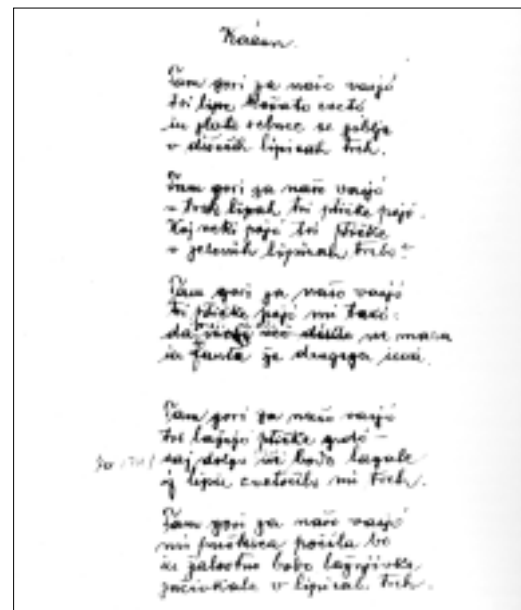 Tam gori za našo vasjó
tri lipe košato cvetó
in zlato solnce se ziblje
v dišečih lipicah treh.
Tam gori za našo vasjó
v treh lipah tri ptičke pojó.
Kaj neki pojó tri ptičke
v zelenih lipicah treh?
Tam gori za našo vasjó
tri ptičke pojó mi takó:
da več me mara
in fanta že drugega ima.
Tam gori za našo vasjó
tri lažnjive ptičke
saj dolgo ne bodo lagale
iz lipic cvetočih mi treh.
Tam gori za našo vasjó
mi puškica počila bo
in žalostno bodo lažnjivke
začivkale v lipicah treh.